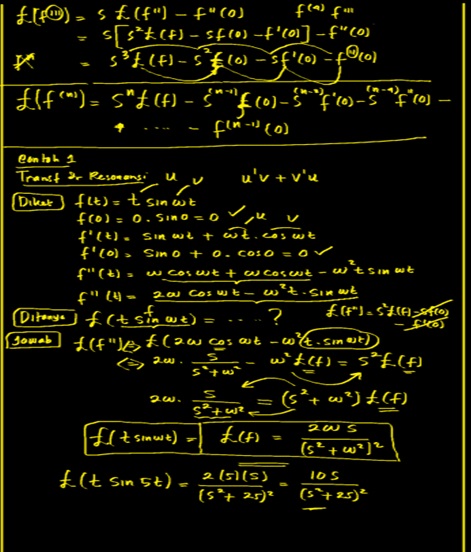 £(f⁽ᴵᴵᴵ⁾) = s £(f'') − f''(0)   f⁽⁴⁾ f'''
= s[s²£(f) − sf(0) − f'(0)] − f''(0)
= s³£(f) − s²f(0) − sf'(0) − f⁽ᴵᴵ⁾(0)
£(f⁽ⁿ⁾) = sⁿ£(f) − s⁽ⁿ⁻¹⁾f(0) − s⁽ⁿ⁻²⁾f'(0) − s⁽ⁿ⁻³⁾f''(0) −
· ···· − f⁽ⁿ⁻¹⁾(0)
Contoh 1
Transf 2r Resonansi   u v   u'v + v'u
Diket f(t) = t sin ωt
f(0) = 0 . sin 0 = 0 ✓   u v
f'(t) = sin ωt + ωt . cos ωt
f'(0) = sin 0 + 0 . cos 0 = 0 ✓
f''(t) = ω cos ωt + ω cos ωt − ω²t sin ωt
f''(t) = 2ω cos ωt − ω²t . sin ωt
Ditanya £(t sin ωt) = ....?   £(f'') = s²£(f) − sf(0)
f   − f'(0)
Jawab £(f'') ⇔ £(2ω cos ωt − ω²(t . sin ωt))
⇔ 2ω . s/(s² + ω²) − ω²£(f) = s²£(f)
2ω . s/(s² + ω²) = (s² + ω²) £(f)
£(t sin ωt) = £(f) = 2ωs/(s² + ω²)²
£(t sin 5t) = 2(5)(s)/(s² + 25)² = 10s/(s² + 25)²